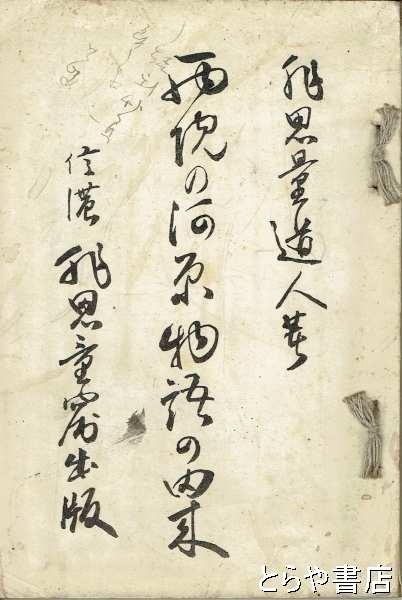 非思量道人著
西院の河原物語の由来
信濃 非思量窟出版
とらや書店